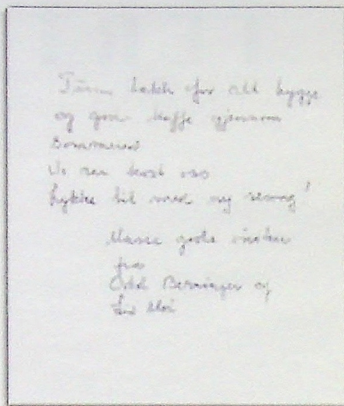 Tusen takk for all hygge
og god kaffe gjennom
sommeren
Vi har kost oss
Lykke til med ny sesong!
Masse gode ønsker
fra
Odd Berninger og